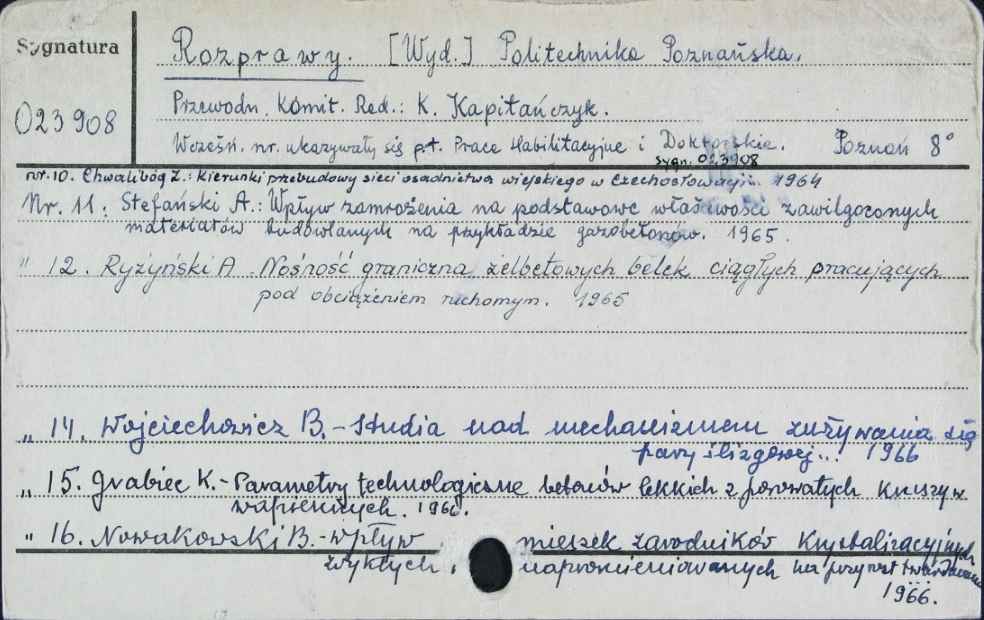 Sygnatura
Rozprawy. [Wyd.] Politechnika Poznańska.
023908
Przewodn. Komit. Red.: K. Kapitańczyk.
Wcześn. nr. ukazywały się p.t. Prace Habilitacyjne i Doktorskie. Poznań 8°
sygn. 023908
nr. 10. Chwalibóg Z.: Kierunki przebudowy sieci osadnictwa wiejskiego w Czechosłowacji. 1964
Nr. 11. Stefański A.: Wpływ zamrożenia na podstawowe właściwości zawilgoconych
materiałów budowlanych na przykładzie gazobetonów. 1965.
" 12. Ryżyński A. Nośność graniczna żelbetowych belek ciągłych pracujących
pod obciążeniem ruchomym. 1965
" 14. Wojciechowicz B. - Studia nad mechanizmem zużywania się
pary ślizgowej... 1966
" 15. Grabiec K. - Parametry technologiczne betonów lekkich z porowatych kruszyw
wapiennych. 1966.
" 16. Nowakowski B. - wpływ mieszek zarodników krystalizacyjnych
zwykłych. napromieniowanych na
1966.